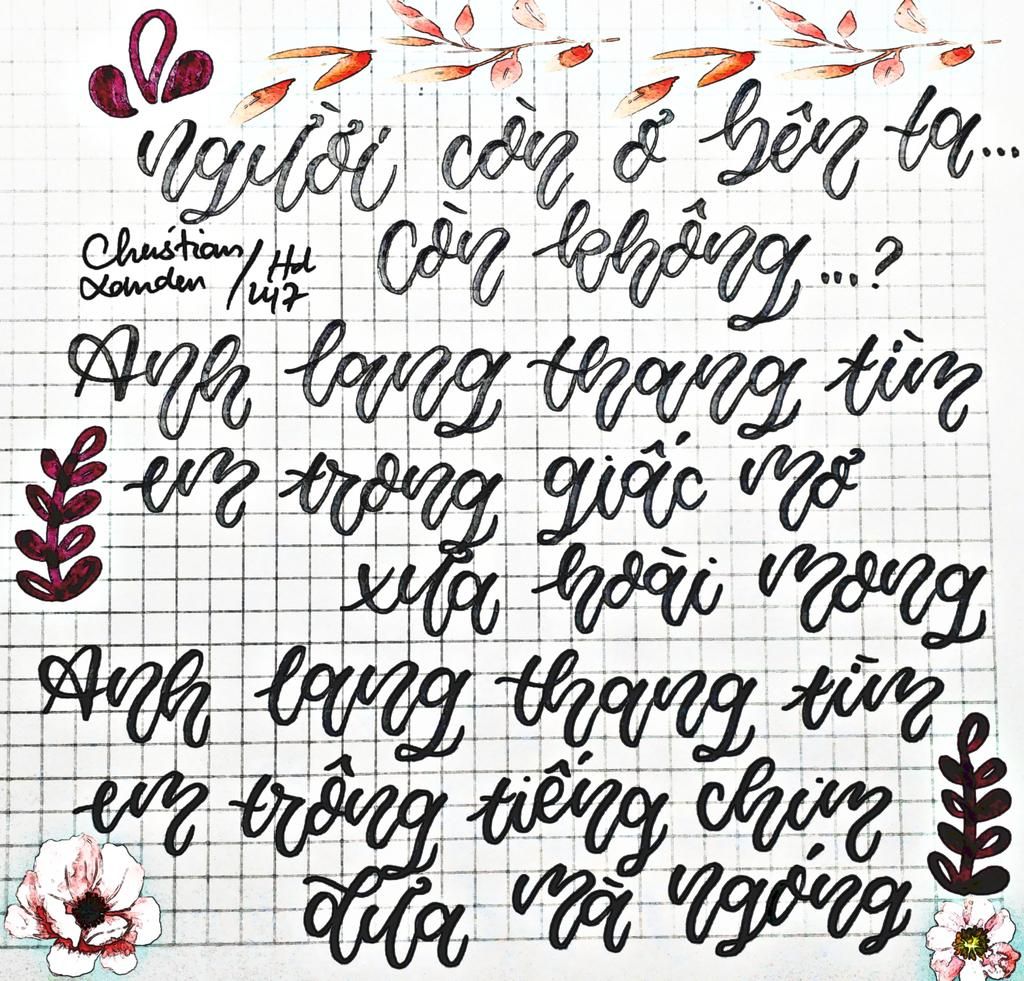 Người còn ở bên ta...
còn không...?
Christian
/Hd
Anh lang thang tìm
em trong giấc mơ
xưa hoài mong
Anh lang thang tìm
em trông tiếng chim
đưa mà ngóng